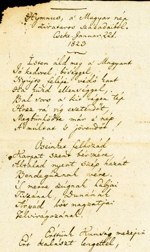 Hymnus, a' Magyar nép
zivataros századaiból.
Cseke, Januar. 22d.
1823
Isten áldd meg a' Magyart
Jó kedvel, bőséggel,
Nyújts feléje védő kart
Ha küzd ellenséggel;
Bal sors a' kit régen tép
Hozz rá víg esztendőt,
Megbünhödte már e' nép
A' multat 's jövendőt.
Őseinket felhozád
Kárpát szent bérczére,
Általad nyert szép hazát
Bendegúznak vére,
'S merre zúgnak habjai
Tiszának, Dunának,
Árpád hős magzatjai
Felvirágozának.
Értünk Kunság mezein
Ért kalászt lengettél,